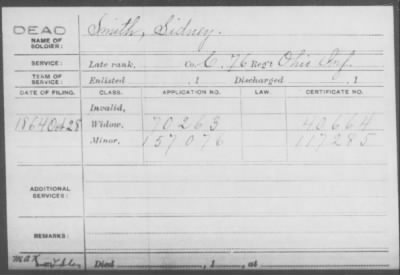 DEAD
NAME OF SOLDIER: Smith, Sidney.
SERVICE: Late rank, Co. C. 76 Reg't Ohio Inf.
TERM OF SERVICE: Enlisted , 1 Discharged , 1
DATE OF FILING. CLASS. APPLICATION NO. LAW. CERTIFICATE NO.
Invalid,
1864 Oct 28 Widow, 70263 40664
Minor, 157076 117285
ADDITIONAL SERVICES:
REMARKS:
Died , 1 , at